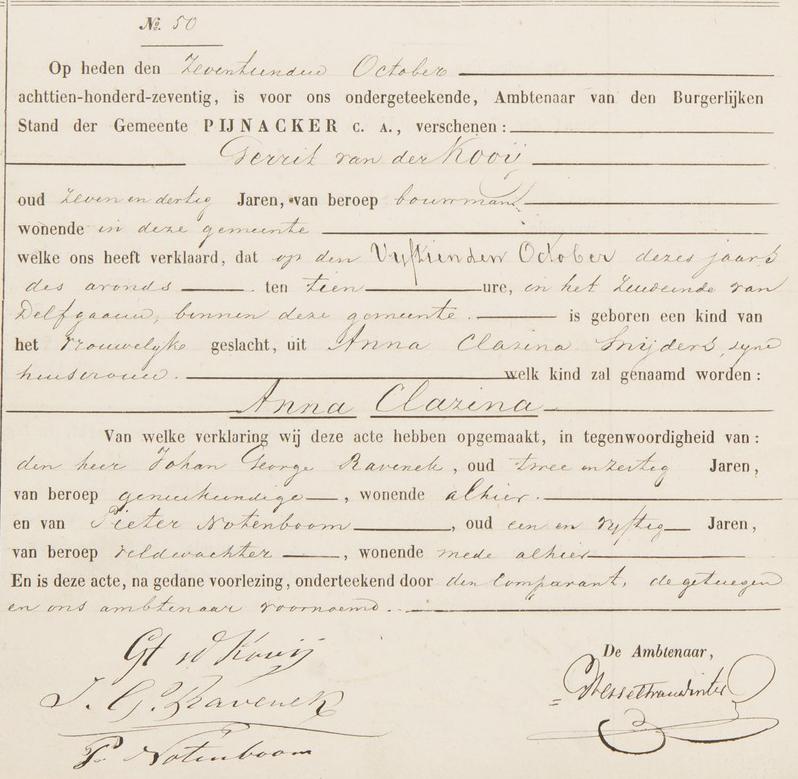 No. 50
Op heden den Zeventienden October
achttien-honderd-zeventig, is voor ons ondergeteekende, Ambtenaar van den Burgerlijken
Stand der Gemeente PIJNACKER C. A., verschenen:
Gerrit van der Kooij
oud zeven en dertig Jaren, van beroep bouwman
wonende in deze gemeente
welke ons heeft verklaard, dat op den Vyftienden October dezes jaars
des avonds ten tien ure, in het Zuideinde van
Delfgaauw, binnen deze gemeente. is geboren een kind van
het vrouwelyke geslacht, uit Anna Clazina Snijders, zyne
huisvrouw. welk kind zal genaamd worden:
Anna Clazina
Van welke verklaring wij deze acte hebben opgemaakt, in tegenwoordigheid van:
den heer Johan George Ravenek, oud twee en zestig Jaren,
van beroep geneeskundige, wonende alhier.
en van Pieter Notenboom, oud een en vyftig Jaren,
van beroep veldwachter, wonende mede alhier
En is deze acte, na gedane voorlezing, onderteekend door den Comparant, de getuigen
en ons ambtenaar voornoemd.
Gt vd Kooij
De Ambtenaar,
J. G. Ravenek
P. Notenboom